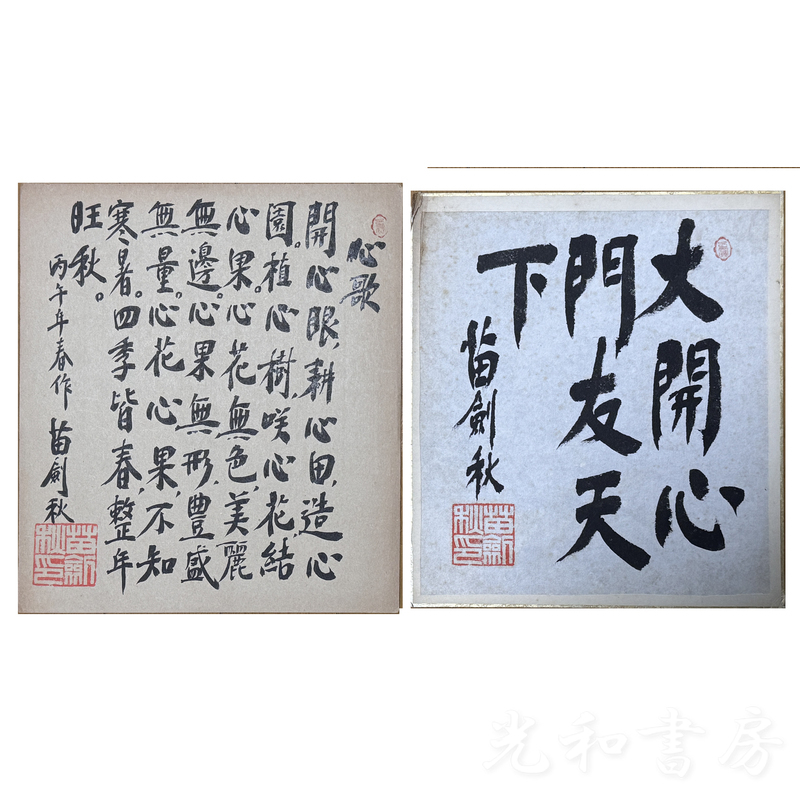 心歌
開心眼，耕心田，造心
園。植心樹，咲心花，結
心果。心花無色，美麗
無邊。心果無形，豊盛
無量。心花心果，不知
寒暑。四季皆春，整年
旺秋。
丙午年春作 苗劍秋
苗劍秋印
大開心
門友天
下
苗劍秋
苗劍秋印
光和書房